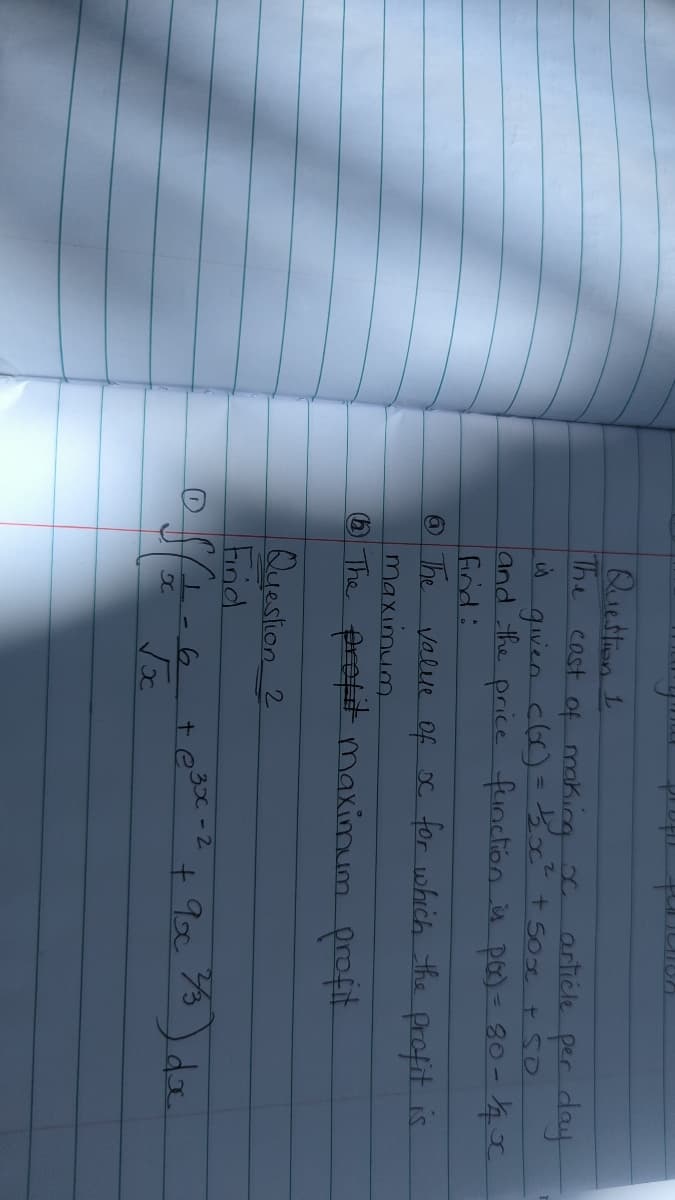 profit function
Question 1
The cost of making x article per day
is given c(x) = 1/2x² + 50x + 50
and the price function is p(x) = 80 - 1/4 x
find :
ⓐ The value of x for which the profit is
maximum
ⓑ The profit maximum profit
Question 2
Find
① ∫(1/x - 6/√x + e^(3x-2) + 9x^(2/3)) dx